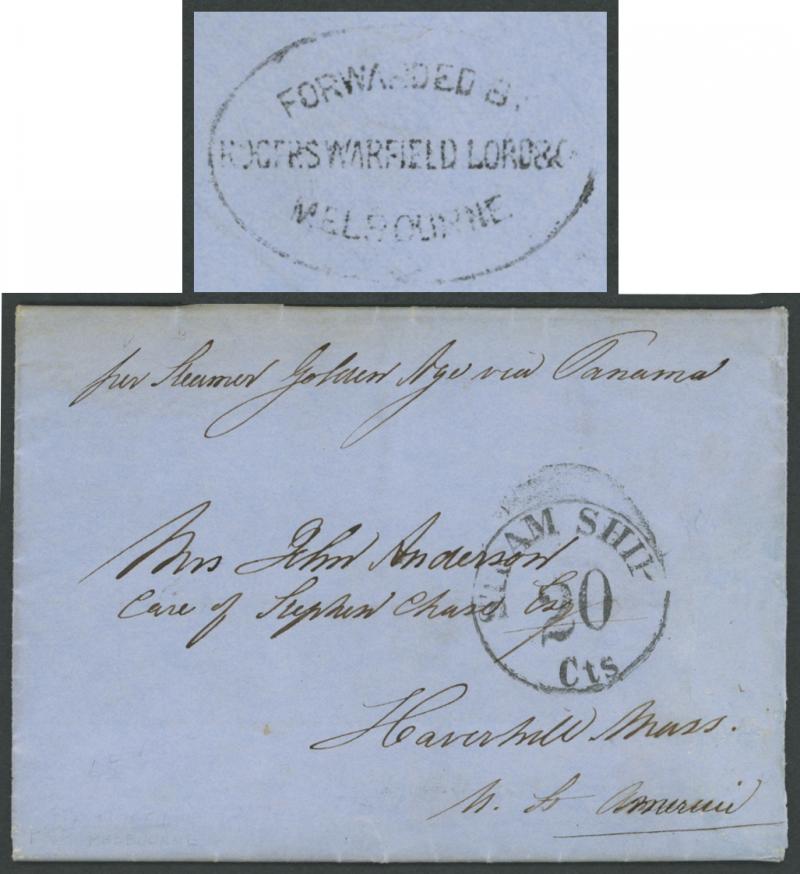 FORWARDED BY
ROGERS WARFIELD LORD & Co
MELBOURNE
per Steamer Golden Age via Panama
STEAM SHIP
20
Cts
Mrs John Anderson
Care of Stephen Chase Esq
Haverhill Mass.
U. St America
MELBOURNE